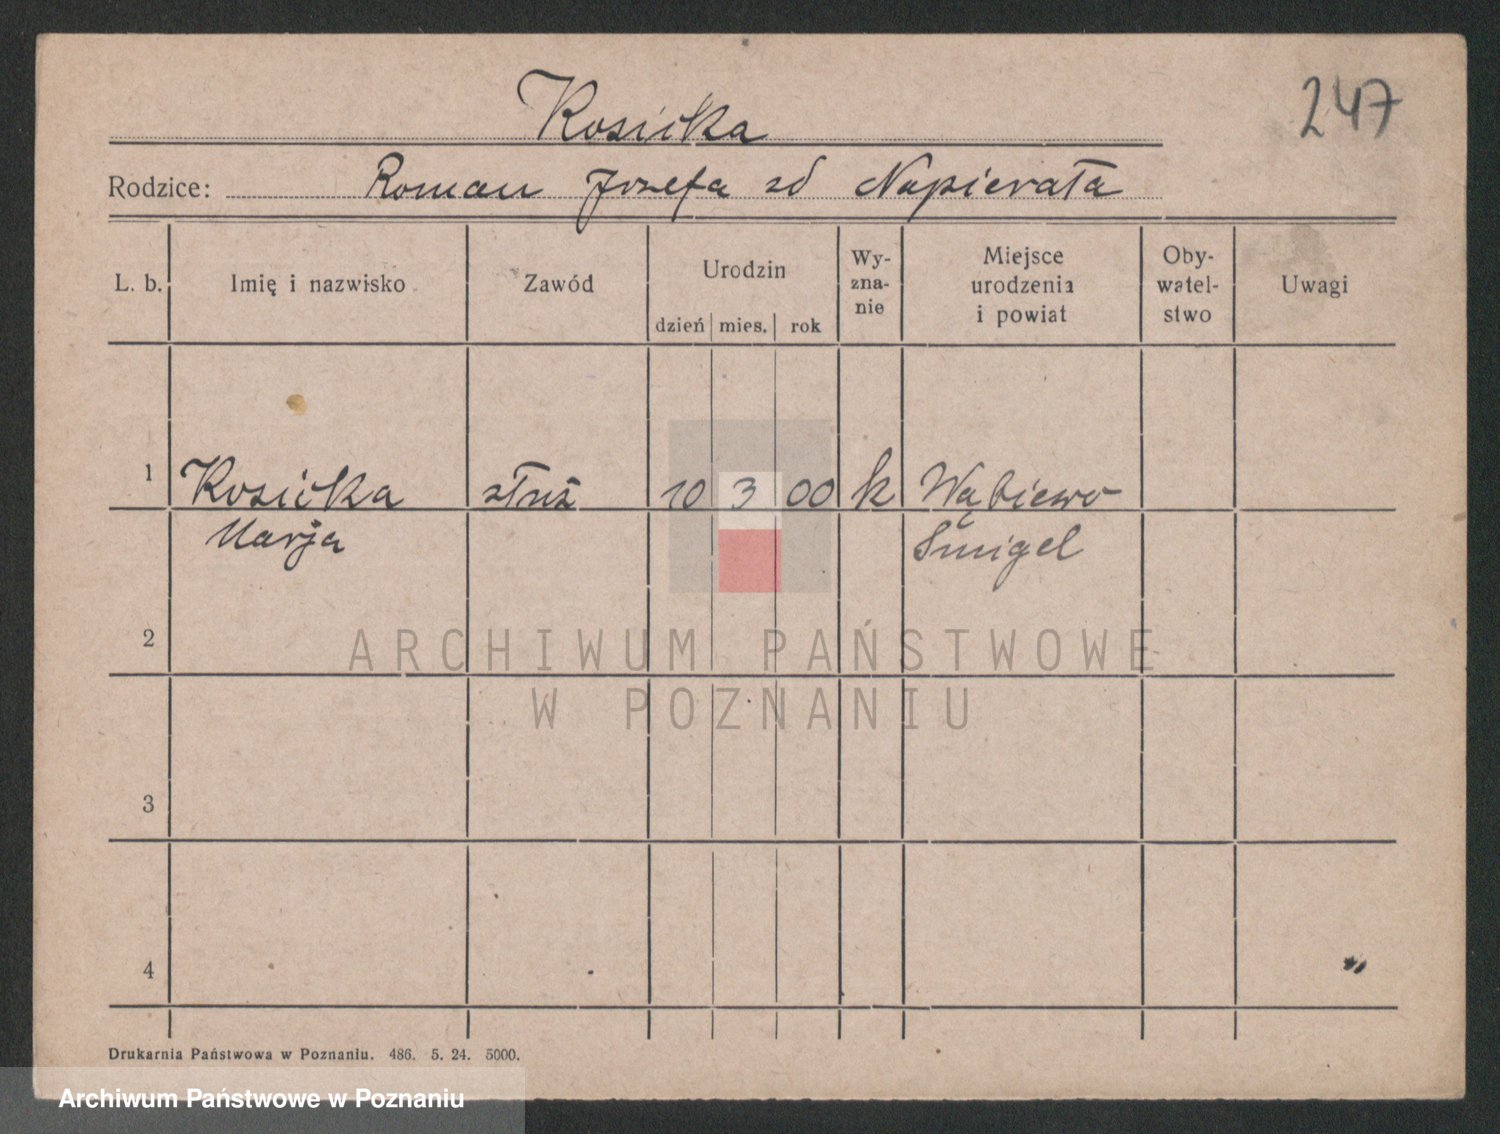 247
Kosicka
Rodzice: Roman Jozefa zd Napierała
L. b.
Imię i nazwisko
Zawód
Urodzin
dzień mies. rok
Wy-
zna-
nie
Miejsce
urodzenia
i powiat
Oby-
watel-
stwo
Uwagi
1 Kosicka służ 10 3 00 k Wąbiewo
Marja Śmigel
2
3
4
ARCHIWUM PAŃSTWOWE
W POZNANIU
Drukarnia Państwowa w Poznaniu. 486. 5. 24. 5000.
Archiwum Państwowe w Poznaniu